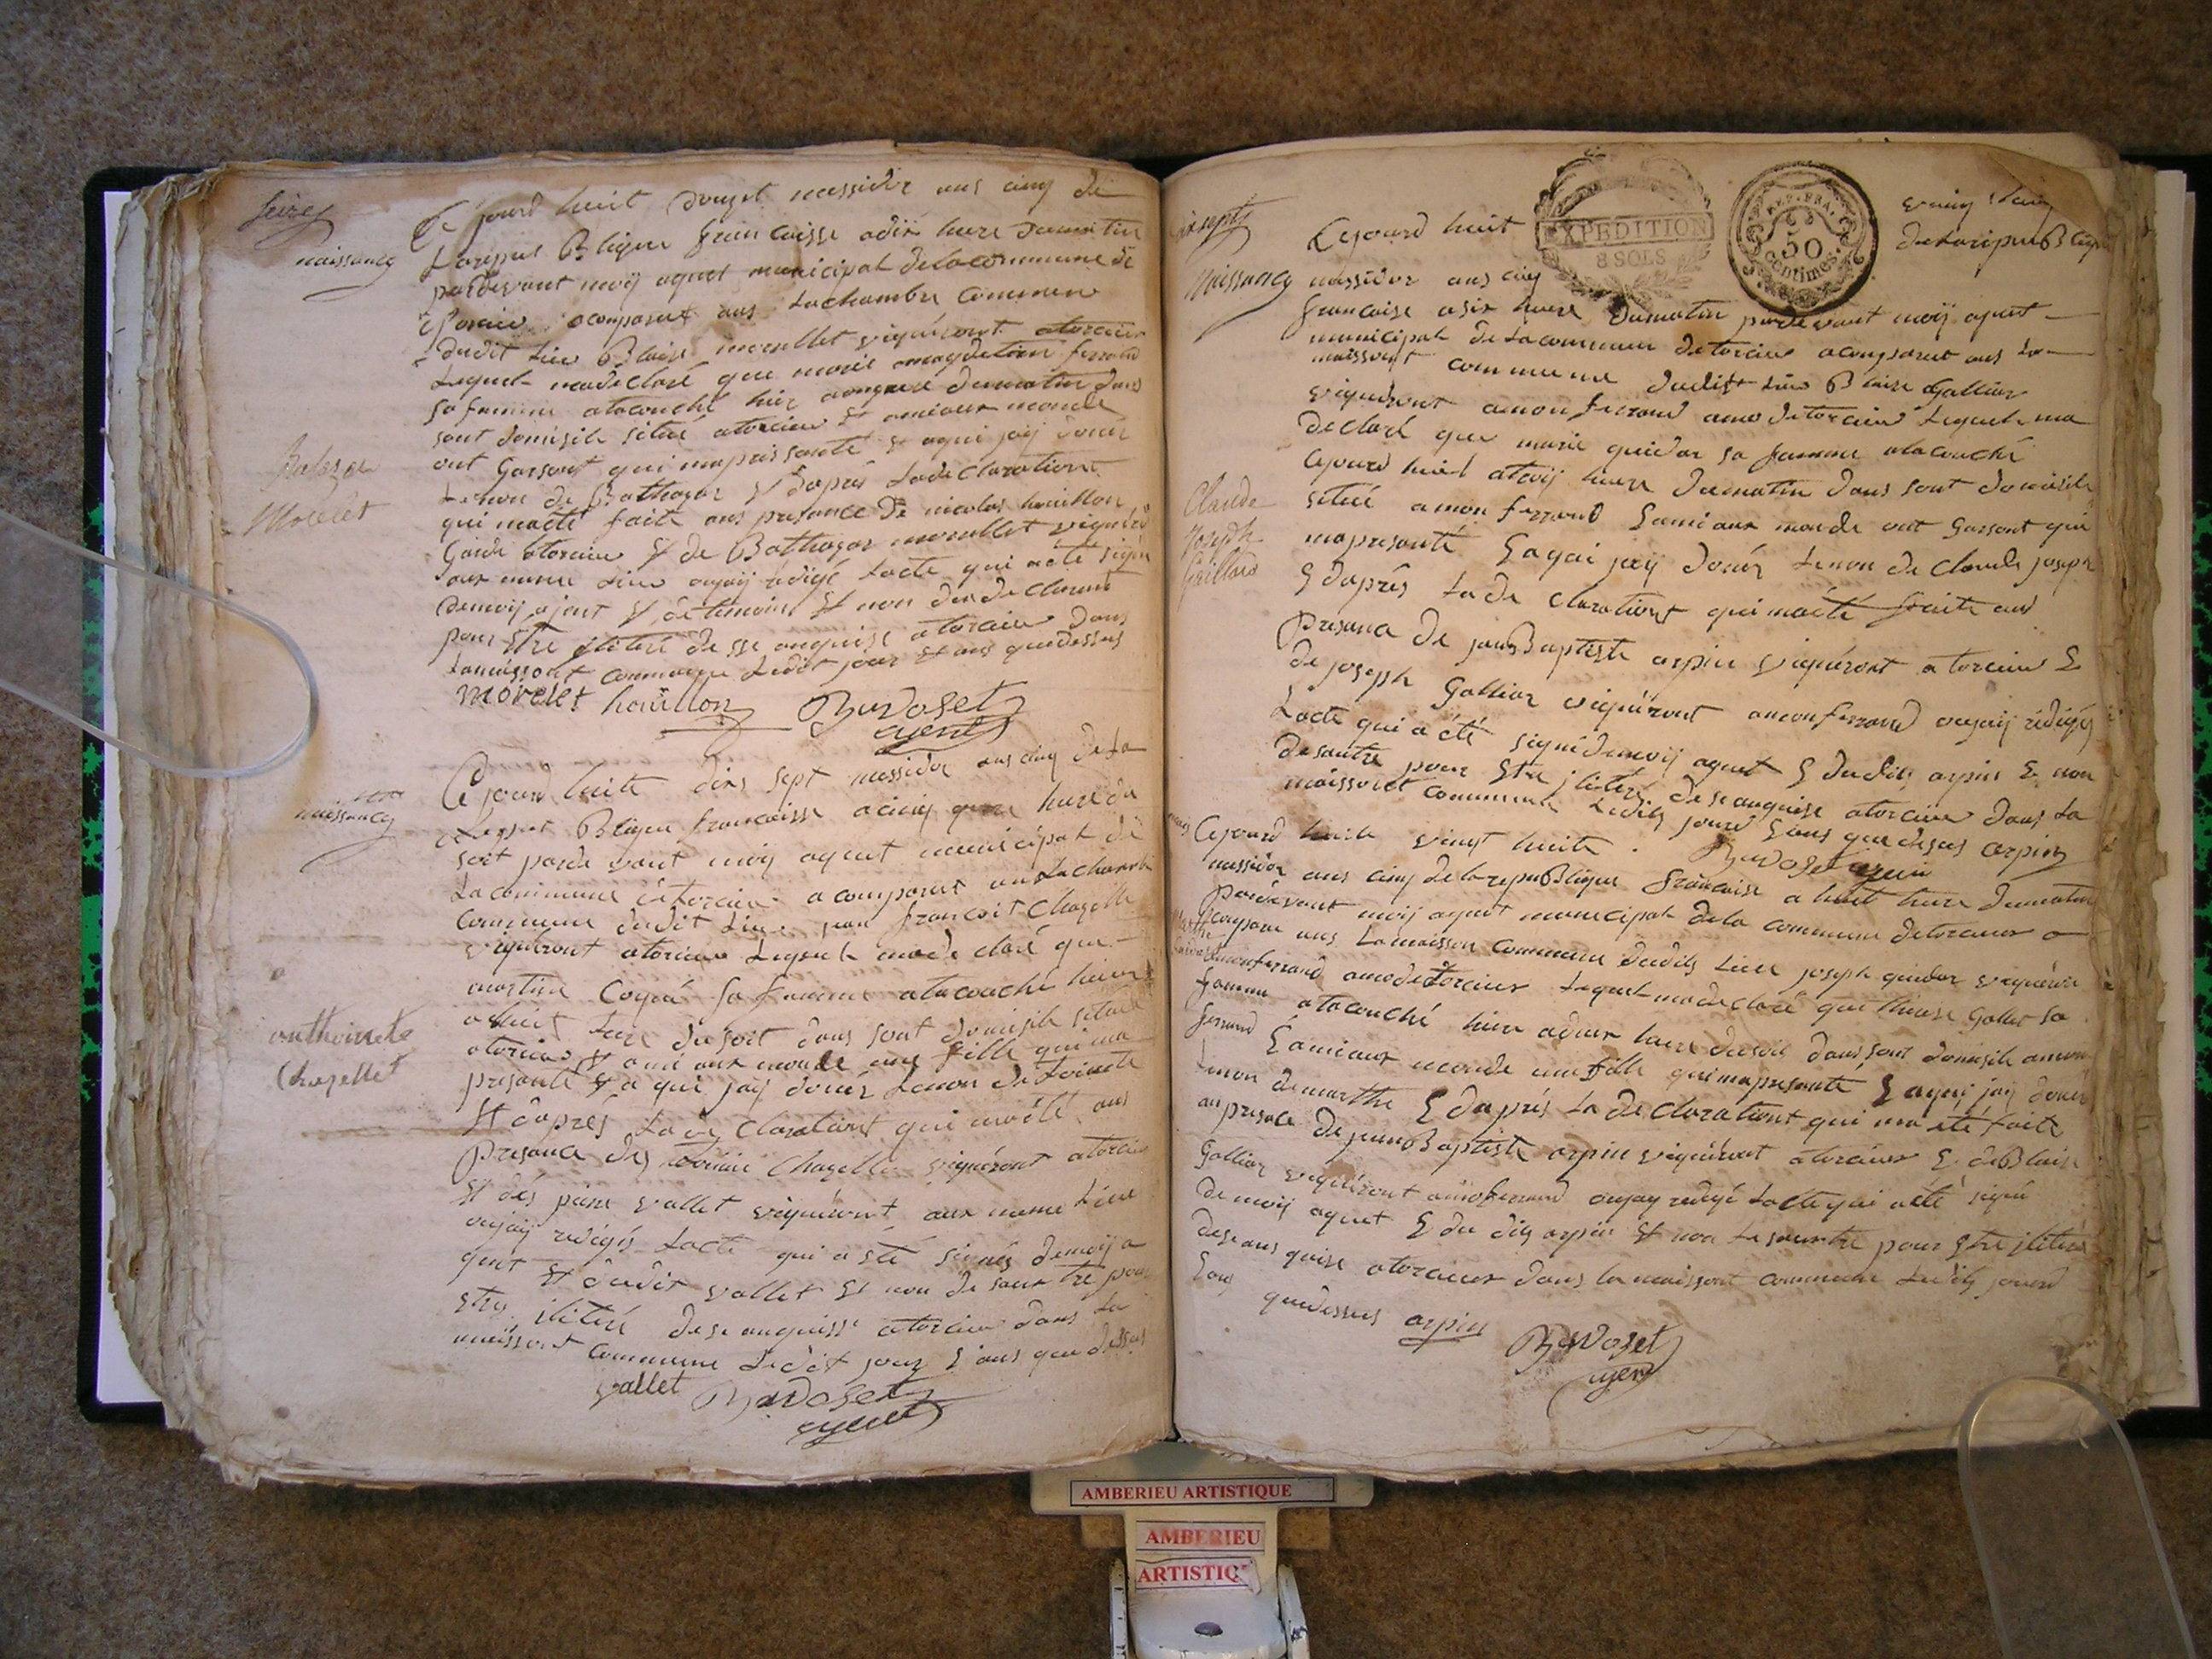 seize
naissance
Ce jourd huit douzet messidor ans cinq de
Lareput Blique francaisse adix hure dumatin
pardevant moÿ agent municipal delacommune de
torcieu acomparut ans Lachambre Commune
dudit Lieu Blaise morellet vigneront atorcieu
Lequel madeclaré que marie magdelaine ferrand
sa femme atacouché hier aonze hure dumatin dans
sont domisile situé atorcieu et amieux monde
ont Garsont qui mapresanté et aqui jaÿ donér
Lenom de Bathazar et dapres Ladeclarationt
qui maeté faite ans presance de nicolas houillon
Garde atorcieu et de Bathazar morellet vigneront
aux meme Lieu ayaÿ rédigé Lacte qui aété signé
demoÿ ajent et de temoins et non du de clarant
pour Etre iliteré de sse anquise atorcieu dans
Lamaissont Commune Ledit jour et ans quedessus
morelet houillon Buvoset
agent
Balsza
Morelet
naissance
Ce jourd huite dix sept messidor ans cinq de La
Reput Blique francaisse acinq hure du
soit parde vant moÿ agent municipal de
Lacommune de torcieu acomparut ans Lachambre
Commune dudit Lieu jean francoit Chapelle
vigneront atorcieu Lequel made claré que
martine Cogné sa femme atacouché hier
ahuit hure dusoit dans sont domisile situé
atorcieu et amé aux monde une fille qui ma
presanté et a qui jaÿ donér Lenom de toinete
et dapres La de Clarationt qui maété ans
presance des toinne Chapelle vigneront atorcieu
et des piere vallet vigneront aux meme Lieu
ayaÿ rédigés Lacte qui a eté signés demoÿ a
gent et dudit vallet et non de sautre pour
etre iliteré dese anquisse atorcieu dans La
maissont Commune Ledit jour E ans que dessus
vallet Buvoset
agent
anthoinete
Chapellet
Naissance
Cejourd huit
EXPEDITION
8 SOLS
REP. FRA.
50
centimes.
vainq Cinq
delaripuBlique
messidor ans cinq
francaise adix hure dumatin pardevant moÿ agent
municipal de Lacommune detorcieu acomparut ans La
maissont commune dudit Lieu Blaise Gallier
vigneront amon ferrand amo detorcieu Lequel ma
declaré que marie guidor sa femme atacouché
cejourd huit atroÿ hure dumatin dans sont domisile
situé amon ferrand Eamiaux monde ont Garsont qui
mapresanté Eaqui jaÿ donér Lenom de Claude joseph
E dapres La de clarationt qui maété faite ans
presance de jean Baptiste arpin vigneront atorcieu E
de joseph Gallier vigneront amonferrand ayaÿ rédigés
Lacte qui a été signé demoÿ agent E dudits arpin E non
desautre pour Etre jliteré dese anquise atorcieu dans La
maissont Commune Ledits jourd Eans quedesus arpin
Buvoset agent
Claude
Joseph
Gaillard
Cejourd huite vingt huite
messidor ans cinq de larepuBlique francaise a huit hure dumatin
pardevant moÿ agent municipal dela commune detorcieu a
compare ans Lamaisson Commune dudits Lieu joseph guidor vigneront
amonferrand amo detorcieu Lequel madeclaré que thirese Gallet sa
femme atacouché hiere adeux hure dusoit dans sont domisile amon
ferrand Eamieux monde une fille quimapresanté E aqui jaÿ donér
Lenom demarthe E dapres La de Clarationt qui ma eté faite
an presance dejean Baptiste arpin vigneront atorcieu E deBlaise
Gallier vigneront amonferrand ayaÿ rédigé Lacte qui aété signé
de moÿ agent E du dits arpin et non Lesautre pour Etre jliteré
dese ans quise atorcieux dans la maissont commune Ledits jourd
E ans quedessus arpin
Buvoset
agent
AMBERIEU ARTISTIQUE
AMBERIEU
ARTISTIQ